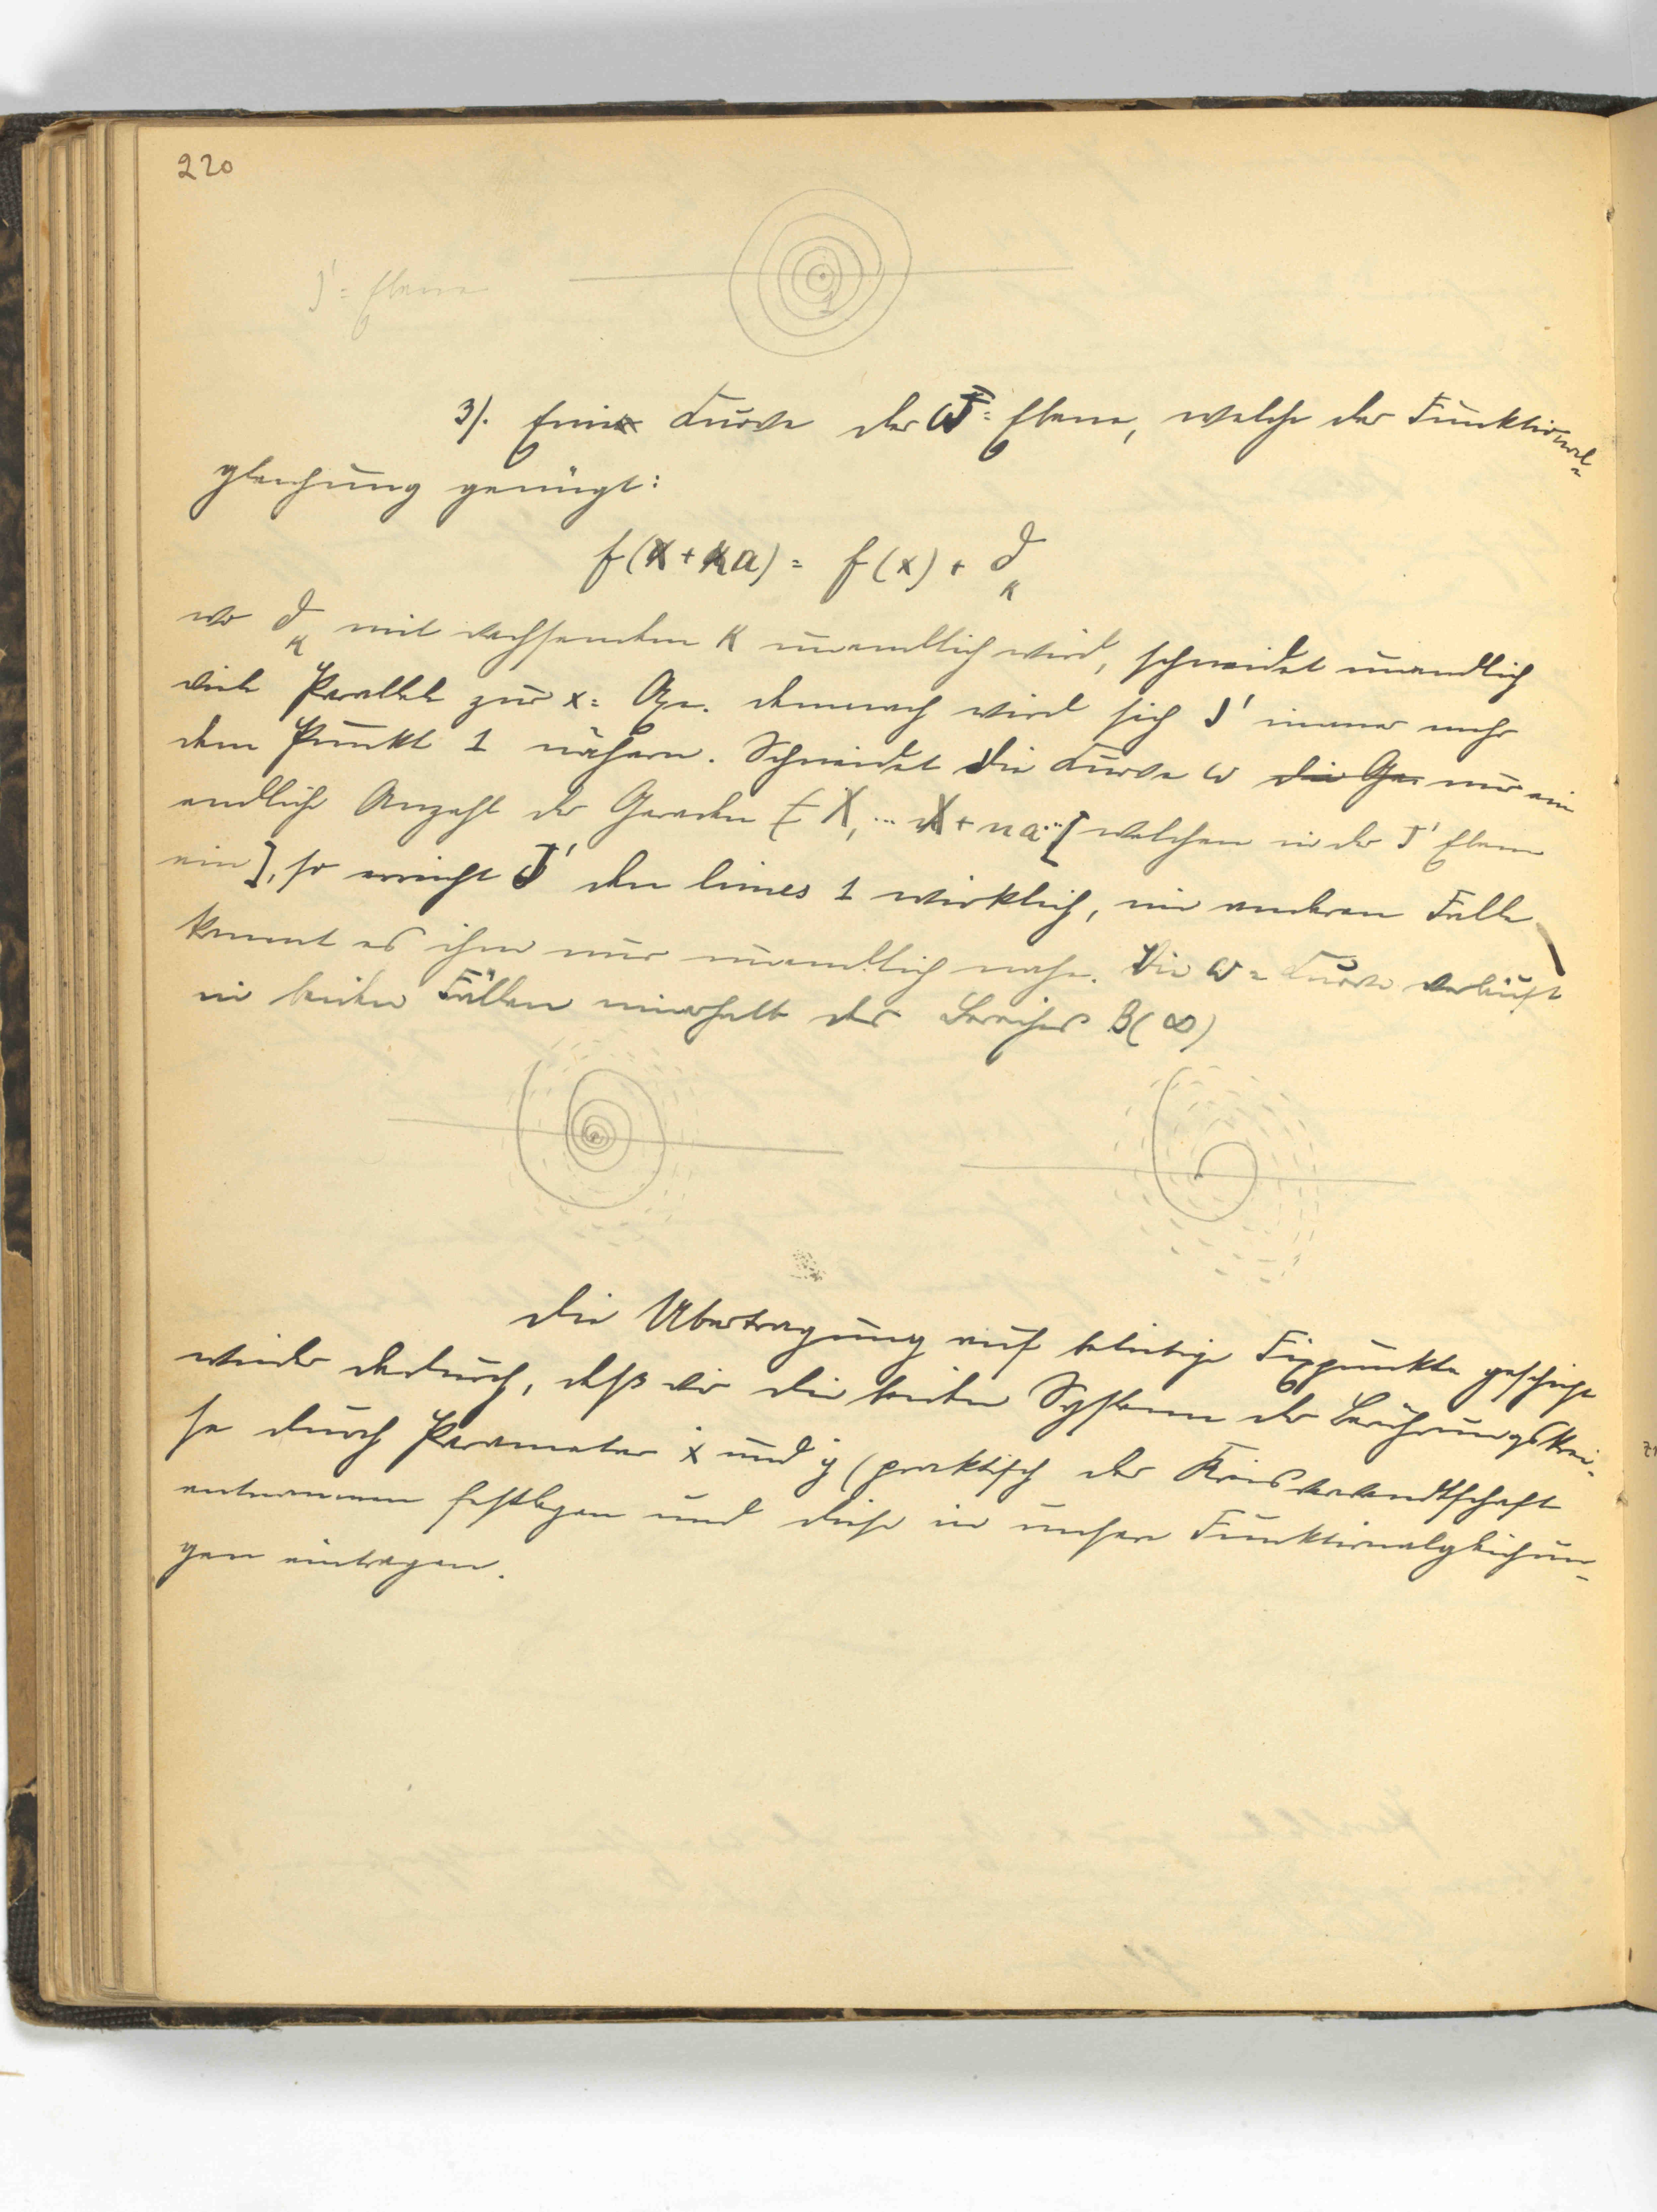 220
J' = Ebene
1
3). Eine Kurve der W = Ebene, welche der Funktional=
gleichung genügt:
f(x+κa) = f(x) + ϑ_κ
wo ϑ_κ mit wachsendem κ unendlich wird, schneidet unendlich
viele Parallele zur x = Axe. demnach wird sich J' immer mehr
dem Punkt 1 nähern. Schneidet die Kurve w die Ger nur ein
endliche Anzahl der Geraden X, ... X + na .. [welchen in der J' Ebene
ein], so erreicht J' den limes 1 wirklich, im anderen Falle
kommt es ihm nur unendlich nahe. Die w = Kurve verläuft
in beiden Fällen innerhalb des Bereiches B(∞)
die Übertragung auf beliebige Fixpunkte geschieht
wieder dadurch, daß wir die beiden Systeme der Berührungskrei-
se durch Parameter ẋ und ẏ (praktisch der Kreisverwandtschaft
entnommen festlegen und diese in unsere Funktionalgleichun-
gen eintragen.